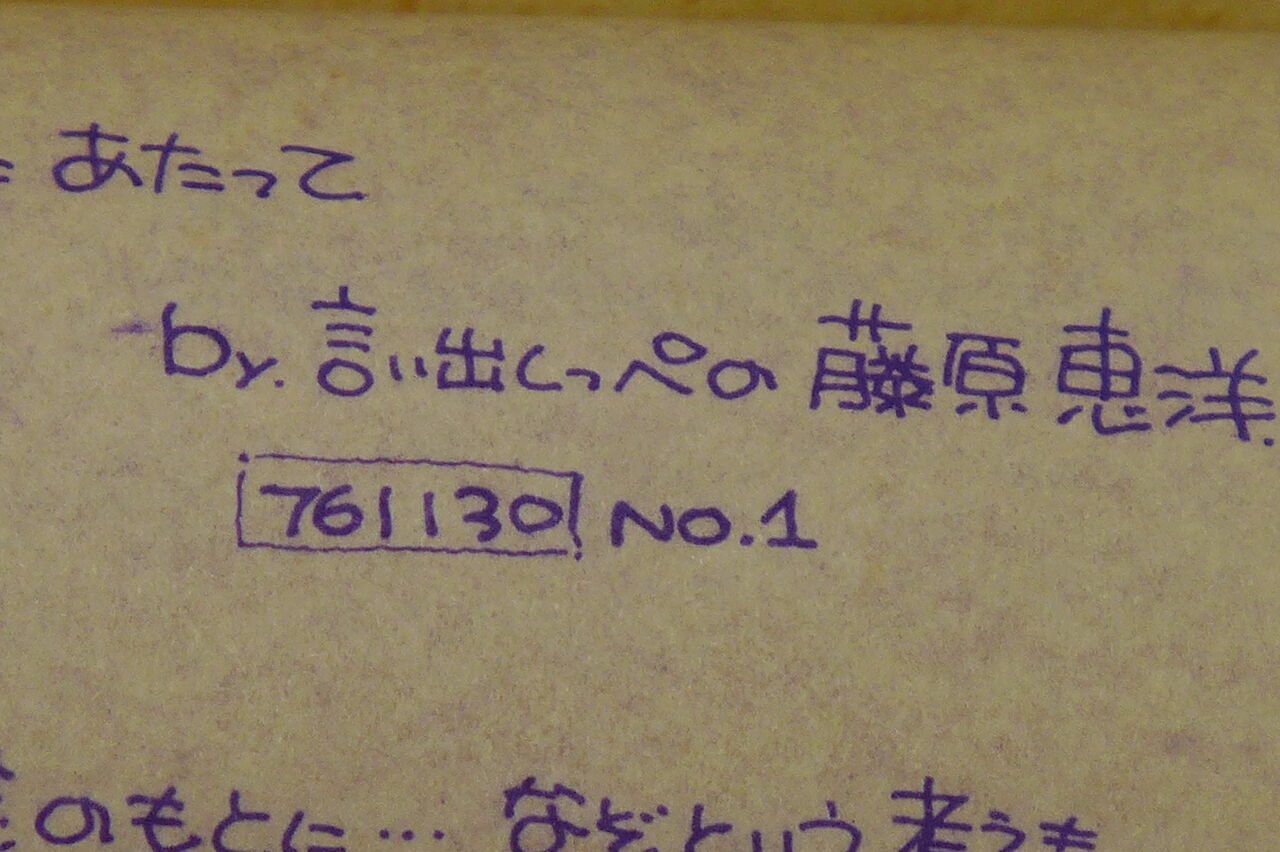 あたって
by. 言い出しっぺの 藤原恵洋.
761130 NO.1
のもとに… などという考えを